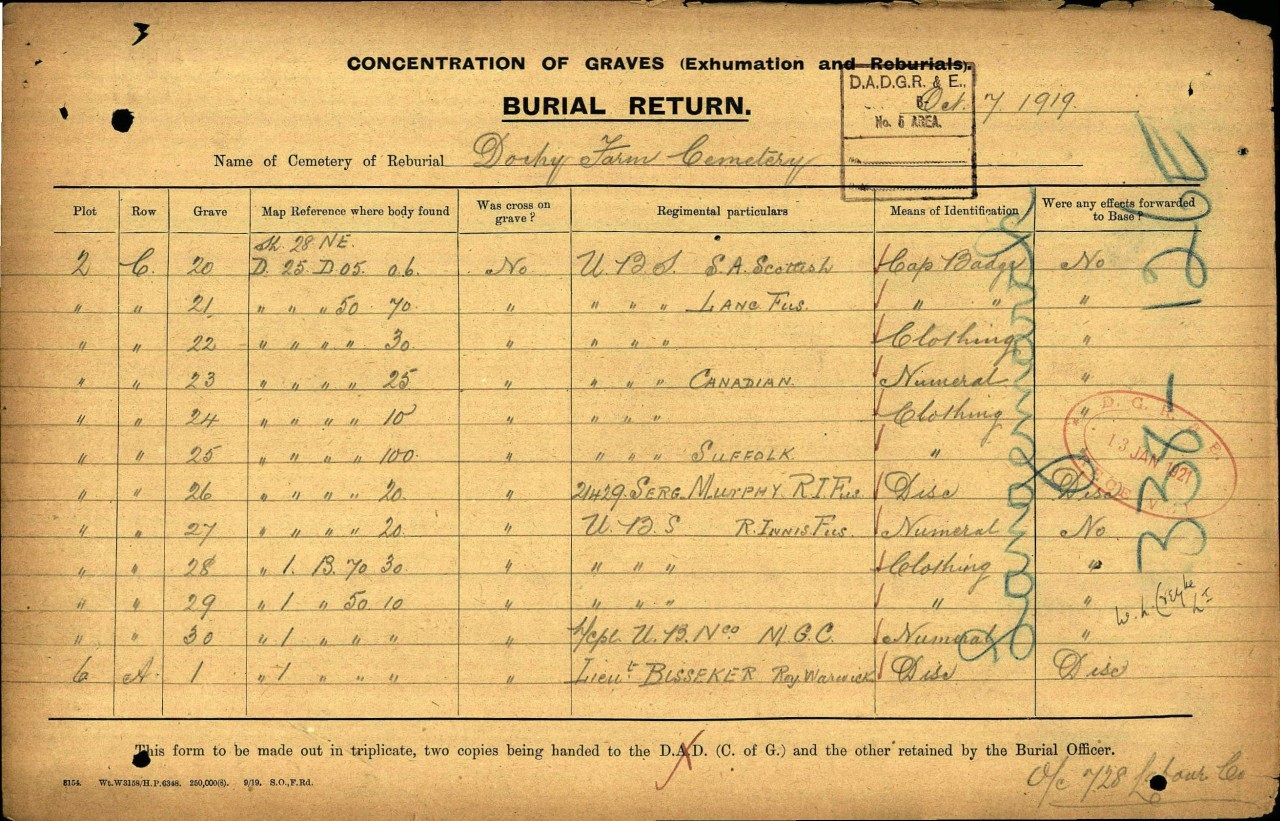 CONCENTRATION OF GRAVES (Exhumation and Reburials).
BURIAL RETURN.
D.A.D.G.R. & E.,
No. 5 AREA.
Oct. 7. 1919.
Name of Cemetery of Reburial Dochy Farm Cemetery
Plot Row Grave Map Reference where body found Was cross on grave? Regimental particulars Means of Identification Were any effects forwarded to Base?
Sh. 28 NE.
2 C. 20 D. 25. D 05. 06. No U. B. S. S.A. Scottish Cap Badge No
" " 21 " " " 50 70 " " " " LANC FUS. " " "
" " 22 " " " " 30 " " " " Clothing "
" " 23 " " " " 25 " " " " CANADIAN. Numeral "
" " 24 " " " " 10 " " " " Clothing "
" " 25 " " " " 100. " " " " SUFFOLK " "
" " 26 " " " " 20. " 21429. SERG. MURPHY R.I. FUS. Disc Disc
" " 27 " " " " 20. " U. B. S R. INNIS FUS. Numeral No.
" " 28 " 1. B. 70 30 " " " " Clothing "
" " 29 " 1 " 50 10 " " " " " "
" " 30 " 1 " " " " L/Cpl. U. B. N co M. G. C. Numeral "
6 A. 1 " 1 " " " " LIEUT BISSEKER Roy. Warwick Disc Disc
D. G. R. & E.
13 JAN 1921
126E
338
This form to be made out in triplicate, two copies being handed to the D.A.D. (C. of G.) and the other retained by the Burial Officer.
5154. Wt.W3158/H.P.6348. 250,000(8). 9/19. S.O.,F.Rd.
O/c 728 Labour Co